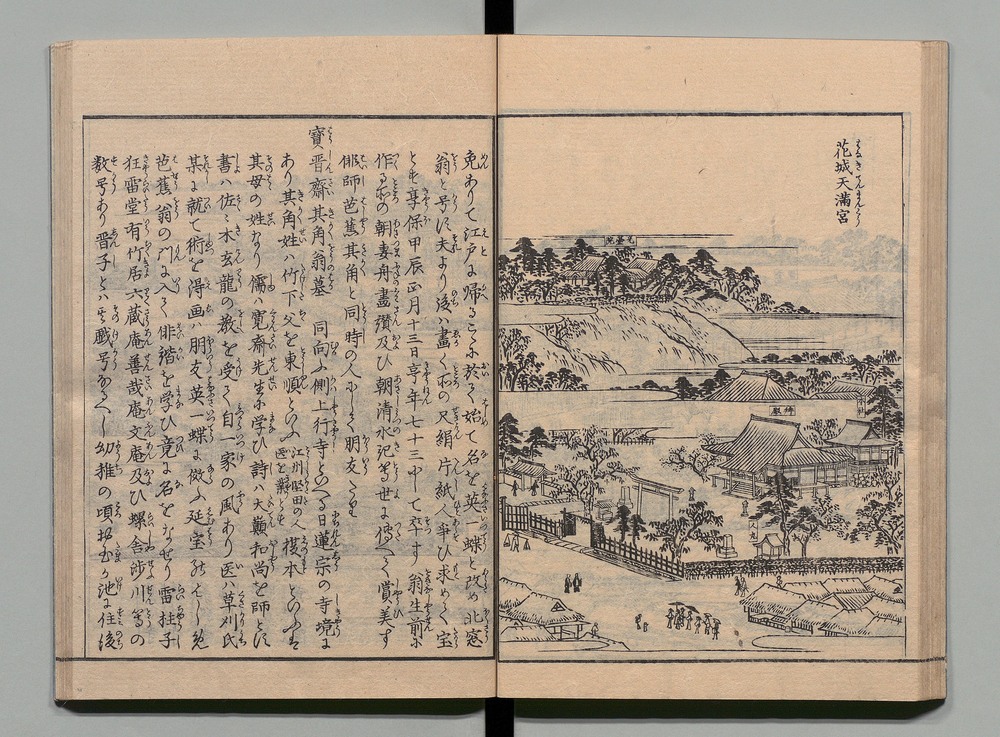 花城天満宮
元基院
拝殿
免ありて江戸に帰るこゝに於て始て名を英一蝶と改め北窓
翁と号す夫より後ハ畫く所の尺絹片紙人争ひ求めて宝
とす享保甲辰正月十三日享年七十三にして卒す翁生前に
作る所の朝妻舟畫讃及ひ朝清水記等世に傳へて賞美す
俳師芭蕉其角と同時の人にして朋友たり
寶晋齋其角翁墓　同向ふ側上行寺といへる日蓮宗の寺境に
あり其角姓ハ竹下父を東順といふ江州堅田の人医を業とす榎本といふハ
其母の姓なり儒ハ寛齋先生に学ひ詩ハ大巓和尚を師とし
書ハ佐々木玄龍の教を受て自一家の風あり医ハ草刈氏
某に就て術を得画ハ朋友英一蝶に傚ふ延宝のはしめ
芭蕉翁の門に入て俳諧を学ひ竟に名をなせり雷柱子
狂雷堂有竹居六蔵庵善哉庵文庵及ひ螺舎渉川等の
数号あり晋子とハ其戯号なるへし幼稚の頃於玉か池に住後